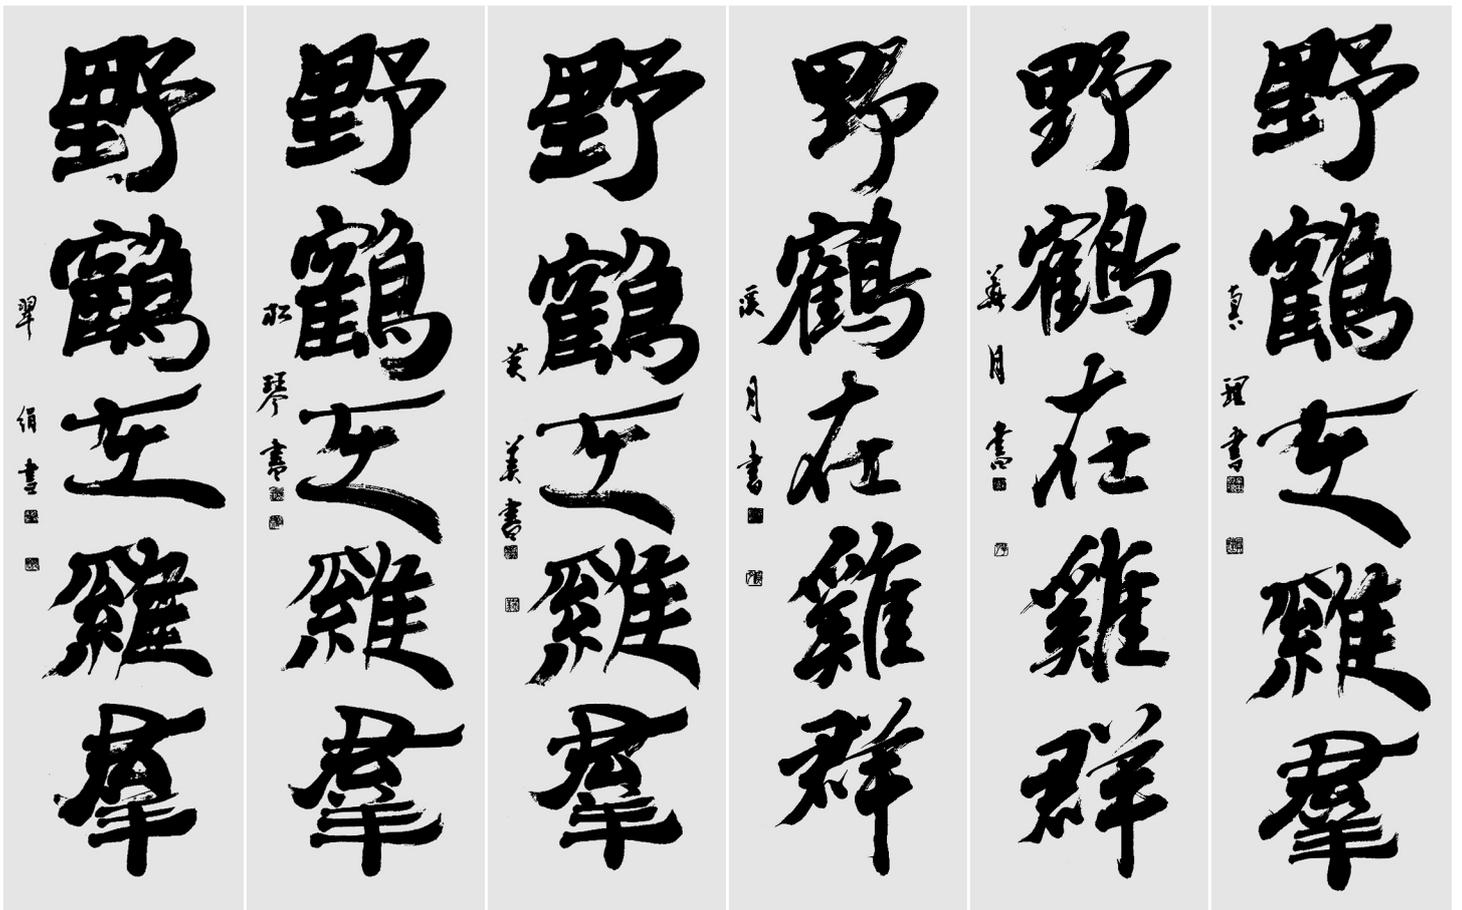 野鶴在雞羣
書
野鶴在雞群
月書
野鶴在雞群
溪月書
野鶴在雞羣
美書
野鶴在雞羣
松琴書
野鶴在雞羣
翠絹書